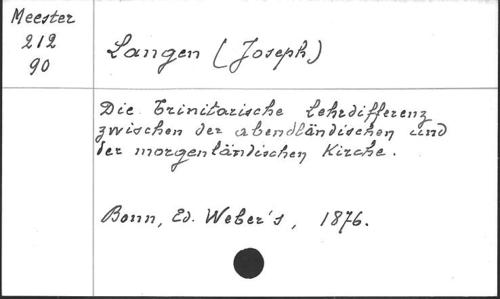 Meester
212
90
Langen (Joseph)
Die Trinitarische Lehrdifferenz
zwischen der abendländischen und
der morgenländischen Kirche.
Bonn, Ed. Weber's, 1876.